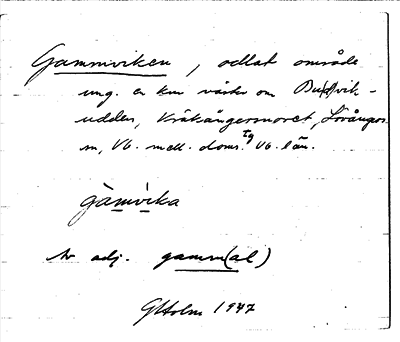 Gammviken, odlat område
ung. en km väster om Bu(d)vik-
udden, Kråkångersnoret, Lövångers
sn, Vb. mell. doms. tg Vb. län.
gàmvika
Av adj. gamm(al)
GHolm 1947